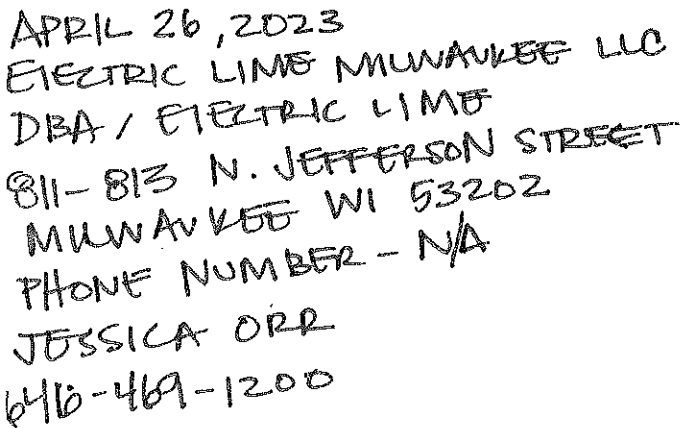 APRIL 26, 2023
ELECTRIC LIME MILWAUKEE LLC
DBA / ELECTRIC LIME
811-813 N. JEFFERSON STREET
MILWAUKEE WI 53202
PHONE NUMBER - N/A
JESSICA ORR
646-469-1200